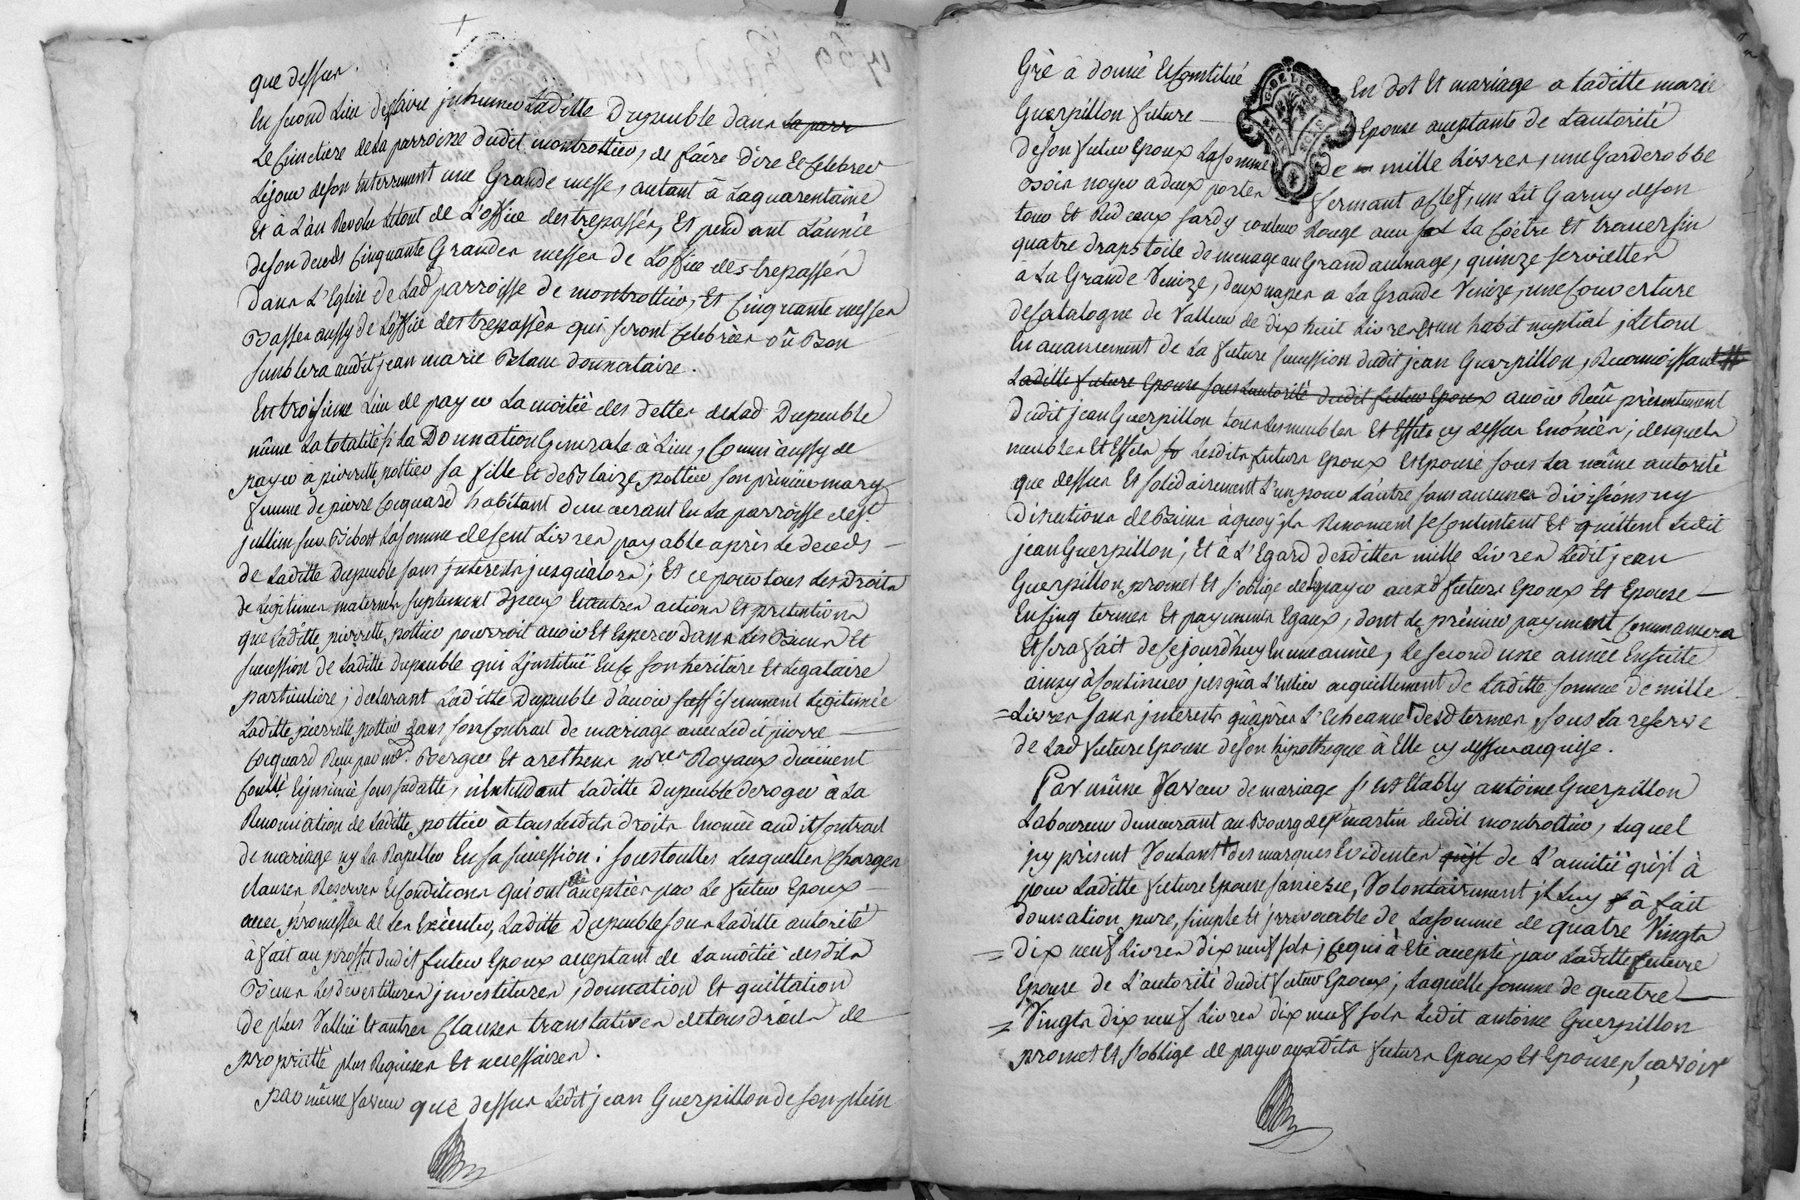 que dessus.
En second Lieu de faire jnhumer Laditte Dupeuble dans La parr
Le Cimetiere de La parroisse dudit montrottier, de faire dire et Celebrer
Le jour de son Enterrement une Grande messe, autant à La quarentaine
Et à L'an Revolu Le tout de L'office des trepassés, Et pendant L'année
de son deceds Cinquante Grandes messes de L'office des trepassés
dans L'Eglise de Lad parroisse de montrottier, Et Cinquante messes
Basses aussy de L'office des trepassés qui seront Celebrées où Bon
semblera audit jean marie Blanc donnataire.
En troisieme Lieu de payer La moitié des dettes de Lad Dupeuble
même La totalité si La Donnation Generale à Lieu, Comme aussy de
payer à pierrette pottier sa fille Et de Blaize pottier son premier mary
femme de pierre Coquard habitant demeurant En La parroisse de st
jullien sur Bibost La somme de Cent Livres payable après Le deceds
de Laditte Dupeuble sans jnterests jusqu'alors; Et ce pour tous Les droits
de Legitimes maternels suplement d'yceux Et autres actions Et pretentions
que Laditte pierrette pottier pourroit avoir Et Esperer dans Les Biens Et
succession de Laditte Dupeuble qui L'jnstitüe En Ce son heritiere Et Legataire
particuliere; declarant Laditte Dupeuble d'avoir suffisamment Legitimée
Laditte pierrette pottier dans son Contrat de mariage avec Ledit pierre
Coquard Reçu par me Berger Et arethens nres Royaux düement
Conllé Ejnsinüé sous sa datte, n'Entendant Laditte Dupeuble deroger à La
Renonciation de Laditte pottier à tous Lesdits droits Enoncée audit Contrat
de mariage ny La Rapeller En sa succession; sous touttes Lesquelles Charges
clauses Reserves Et Conditions qui ont été acceptées par Le futur Epoux
avec promesses de Les Executer, Laditte Dupeuble sous Laditte autorité
à fait au profit dudit futur Epoux acceptant de La moitié desdits
Biens Les devestitures jnvestitures, donnation Et quittation
de plus Vallüe Et autres Clauses translatives de tous droits de
proprieté plus Requises Et necessaires.
par même faveur que dessus Ledit jean Guerpillon de son plein
Gré à donné Et Constitué En dot Et mariage a Laditte marie
Guerpillon future Epouse acceptante de L'autorité
de son futur Epoux La somme de mille Livres, une Garderobbe
Bois noyer a deux portes fermant a Clef, un Lit Garny de son
tour Et Rideaux sardy couleur Rouge avec La Coëtre Et traversin
quatre draps toile de menage au Grand aunage, quinze serviettes
a La Grande Venize, deux napes a La Grande Venize, une Couverture
de Catalogne de Valleur de dix huit Livres Et un habit nuptial, Le tout
En avancement de La future succession dudit jean Guerpillon, Reconnoissant
Laditte future Epouse sous L'autorité dudit futur Epoux avoir Reçû présentement
dudit jean Guerpillon tous Les meubles Et Effets cy dessus Enoncés; desquels
meubles Et Effets Lesdits futurs Epoux Et Epouse sous La même autorité
que dessus Et solidairement L'un pour L'autre sans aucunes divisions ny
discutions de Biens à quoy jls Renoncent se Contentent Et quittent Ledit
jean Guerpillon; Et à L'Egard desdittes mille Livres Ledit jean
Guerpillon promet Et s'oblige de Les payer auxd futurs Epoux Et Epouse
En Cinq termes Et payements Egaux, dont Le prémier payement Commancera
Et sera fait de Cejourd'huy En une année, Le second une année Ensuite
ainsy à Continuer jusqu'à L'Entier acquittement de Laditte somme de mille
Livres sans jnterests qu'après L'Echeance desd termes, sous La reserve
de Lad future Epouse de son hipotheque à Elle cy dessus acquise.
Par même Faveur de mariage s'est Etably antoine Guerpillon
Laboureur demeurant au Bourg de st martin dudit montrottier, Lequel
jcy présent Voulant des marques Evidentes qu'jl de L'amitié qu'jl à
pour Laditte future Epouse sa niéce, Volontairement jl Luy à fait
donnation pure, simple Et jrrevocable de La somme de quatre Vingts
dix neuf Livres dix neuf sols, ce qui à Eté accepté par Laditte future
Epouse de L'autorité dudit futur Epoux; Laquelle somme de quatre
Vingts dix neuf Livres dix neuf sols Ledit antoine Guerpillon
promet Et s'oblige de payer auxdits futurs Epoux Et Epouse, sçavoir